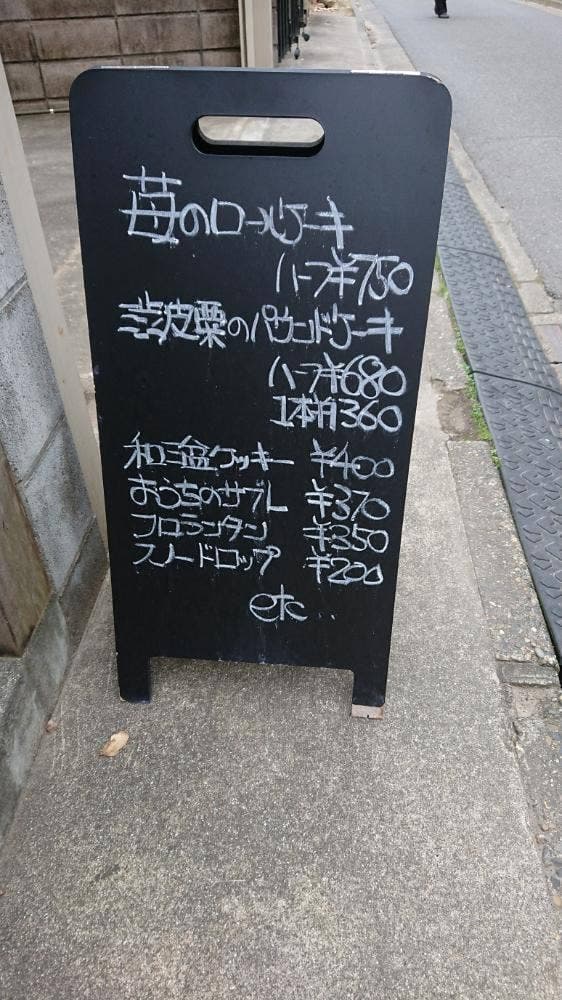 苺のロールケーキ
ハーフ¥750
渋皮栗のパウンドケーキ
ハーフ¥680
¥1360
和三盆クッキー ¥400
おうちのサブレ ¥370
フロランタン ¥350
スノードロップ ¥200
etc...